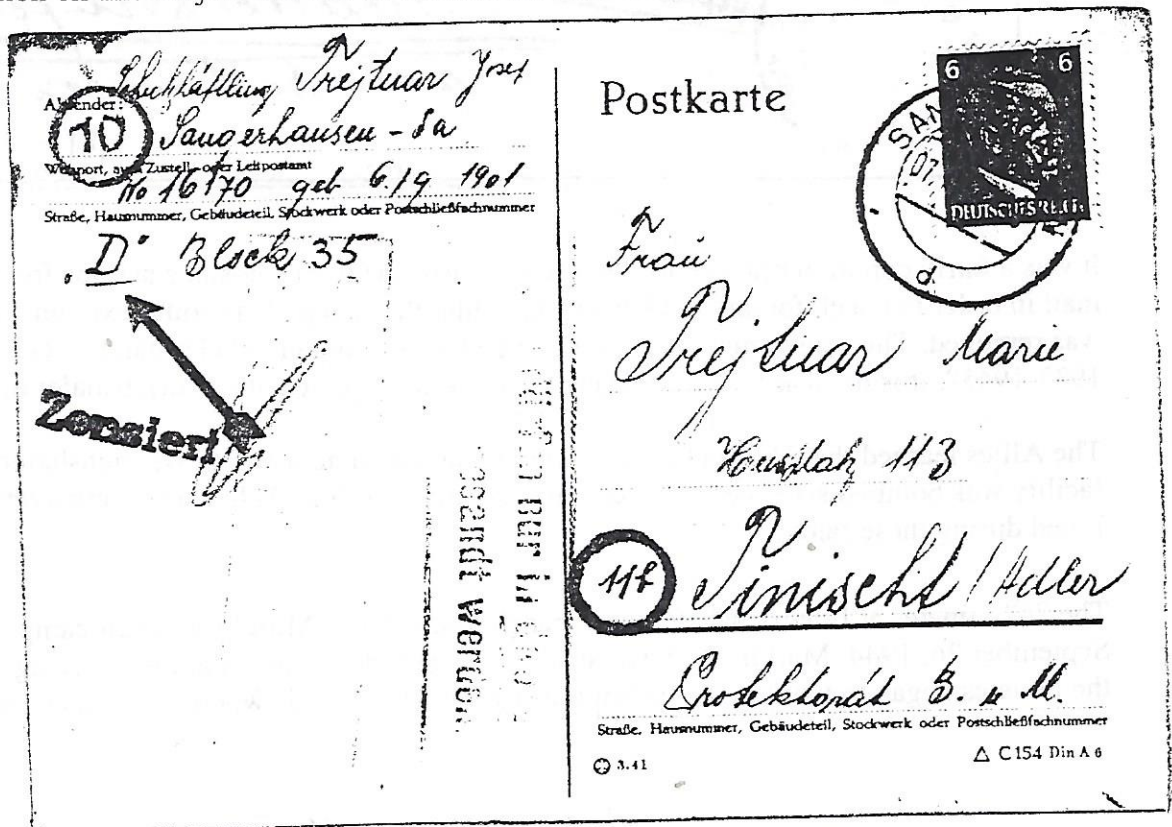 Schutzhäftling Trejtnar Josef
Absender:
10
Sangerhausen - Sa
Wohnort, auch Zustell- oder Leitpostamt
No 16170 geb 6./9 1901
Straße, Hausnummer, Gebäudeteil, Stockwerk oder Postschließfachnummer
"D" Block 35
Zensiert
nur in
gesandt werden
Postkarte
6 6
DEUTSCHES REICH
SAN
d
Frau
Trejtnar Marie
113
11f
Tinischt / Adler
Protektorát B. u M.
Straße, Hausnummer, Gebäudeteil, Stockwerk oder Postschließfachnummer
3.41
C 154 Din A 6